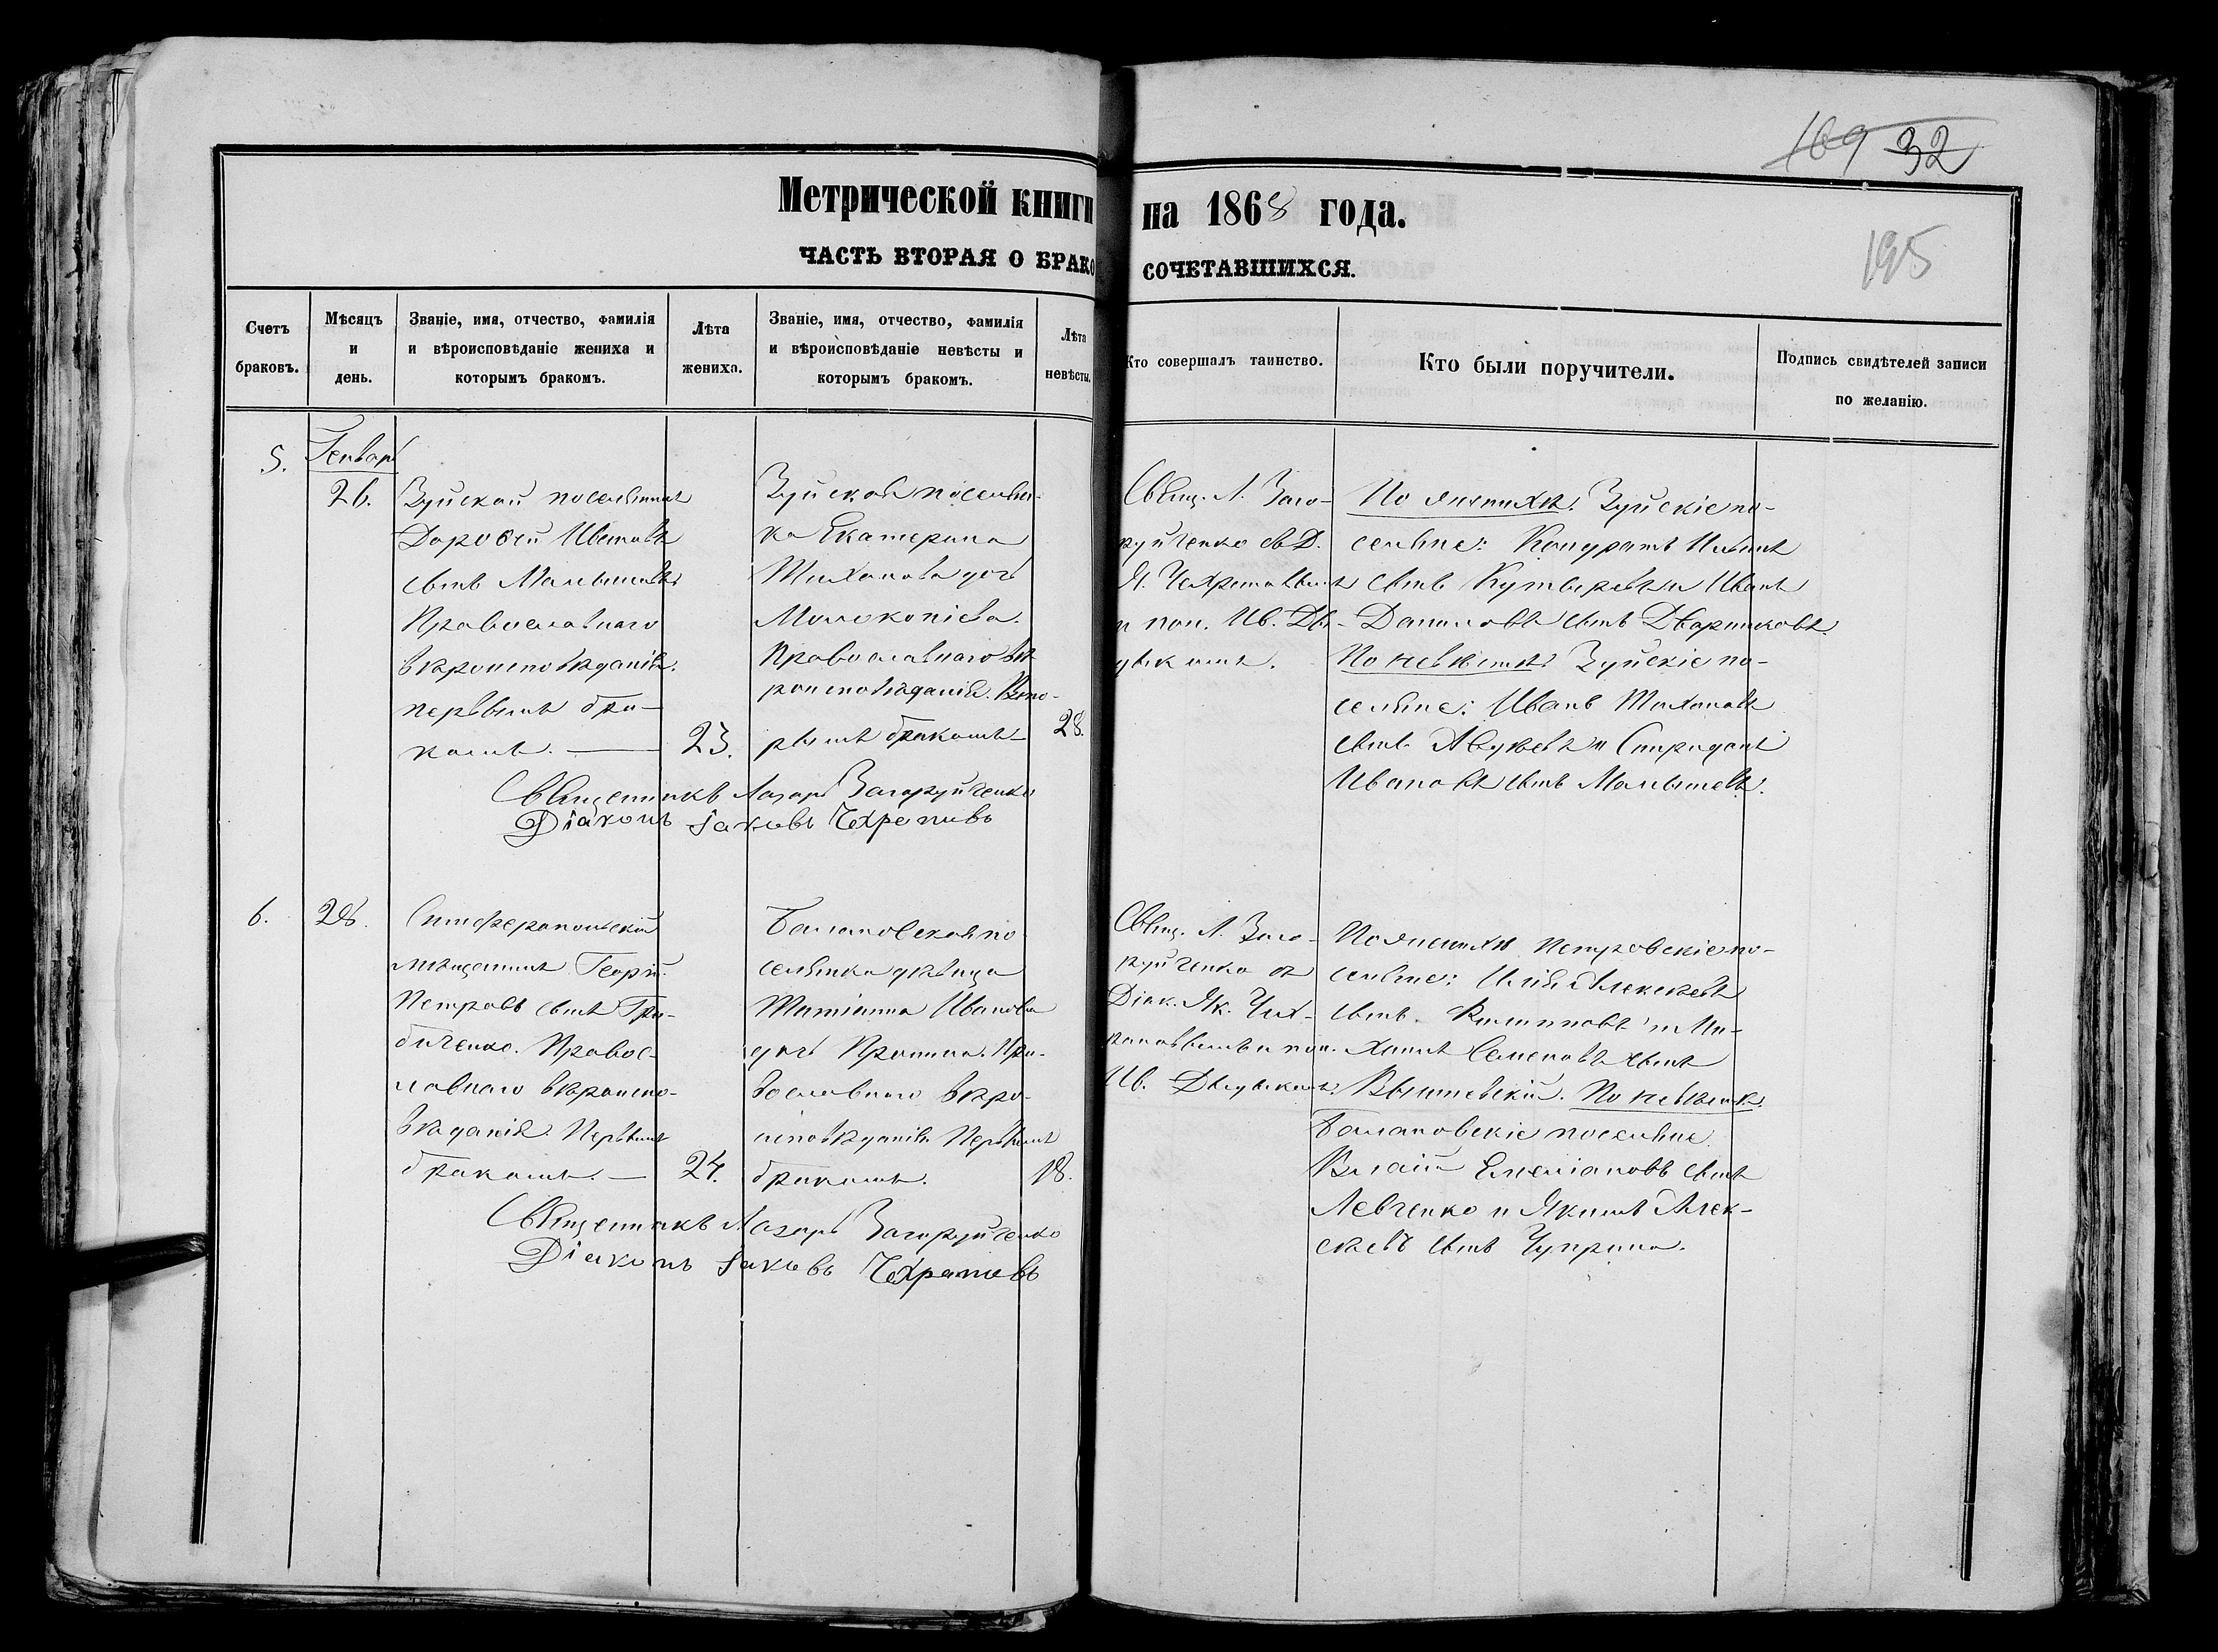 169 32
195
Метрической книги на 1868 года.
ЧАСТЬ ВТОРАЯ О БРАКОСОЧЕТАВШИХСЯ.
Счетъ браковъ.
Мѣсяцъ и день.
Званіе, имя, отчество, фамилія
и вѣроисповѣданіе жениха и
которымъ бракомъ.
Лѣта жениха.
Званіе, имя, отчество, фамилія
и вѣроисповѣданіе невѣсты и
которымъ бракомъ.
Лѣта невѣсты.
Кто совершалъ таинство.
Кто были поручители.
Подпись свидѣтелей записи
по желанію.
5.
Генварь
26.
Зуйской поселянинъ
Дорофей Ивановъ
сынъ Малышевъ
Православнаго
вѣроисповѣданія.
первымъ бра-
комъ.
23.
Зуйская поселян-
ка Екатерина
Тиханова дочь
Православнаго вѣ-
роисповѣданія. Вто-
рымъ бракомъ
28.
Свящ. Л. Заго-
руйченко съ Д.
и пон. Ив. Дв-
По женихѣ: Зуйскіе по-
селяне: Кондратъ Ильинъ
сынъ Кутыревъ и Иванъ
Даниловъ сынъ Дворниковъ.
По невѣстѣ: Зуйскіе по-
селяне: Иванъ Тихановъ
сынъ Авдѣевъ и Спиридонъ
Ивановъ сынъ Малышевъ.
Священникъ Лазарь Загоруйченко
Діаконъ Іаковъ Чехрановъ
6.
28.
Симферопольскій
мѣщанинъ Георгій
Петровъ сынъ Гра-
биченко. Правос-
лавнаго вѣроиспо-
вѣданія. Первымъ
бракомъ.
24.
Балановская по
селянка дѣвица
Татіанна Иванова
дочь Пронина. Пра-
вославнаго вѣро-
исповѣданія Первымъ
бракомъ.
18.
Свящ. Л. Заго-
руйченко съ
Діак. Як. Чех-
рановымъ и пон.
По женихѣ Петровскіе по-
селяне: Илія Алексѣевъ
сынъ Филиповъ и Ми-
хаилъ Семеновъ сынъ
Вышневскій. По невѣстѣ.
Балановскіе поселяне
Власій Емеліановъ сынъ
Левченко и Якимъ Алек-
сѣевъ сынъ Чуприна.
Священникъ Лазарь Загоруйченко
Діаконъ Іаковъ Чехрановъ